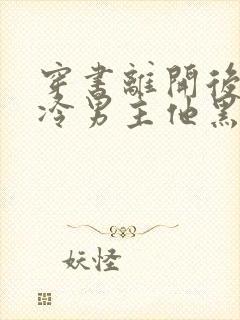 穿書離開後
冷男主他黑
妖怪